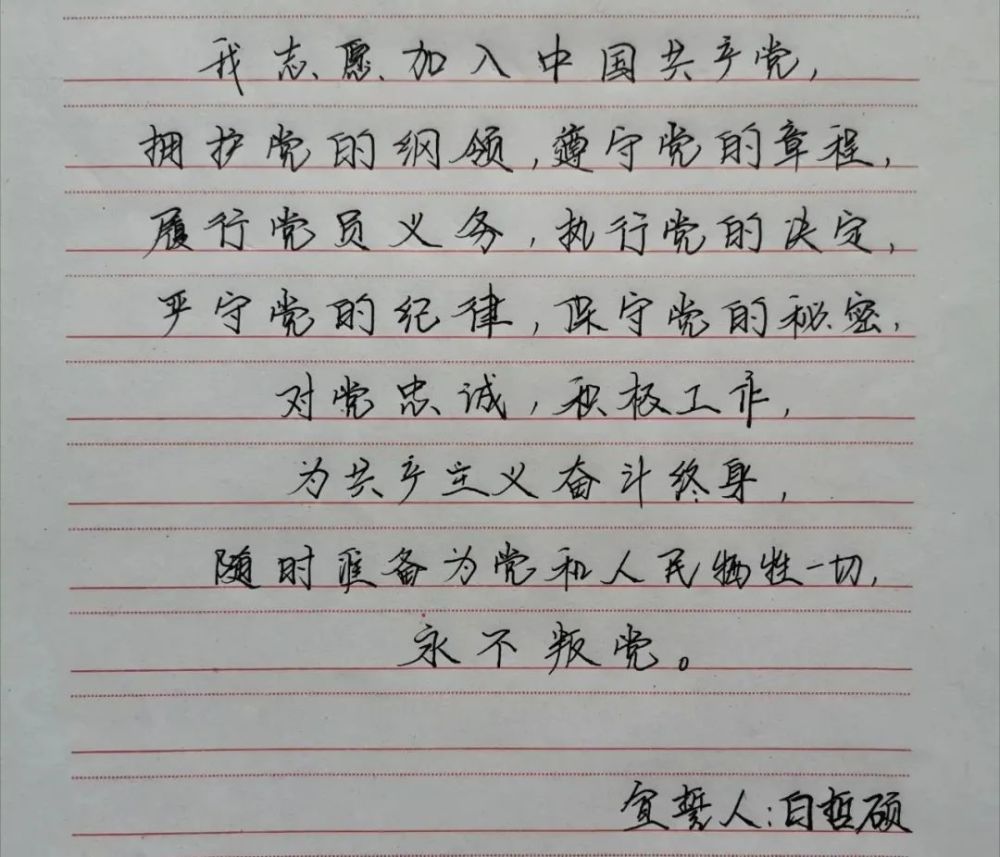 我志愿加入中国共产党,
拥护党的纲领,遵守党的章程,
履行党员义务,执行党的决定,
严守党的纪律,保守党的秘密,
对党忠诚,积极工作,
为共产主义奋斗终身,
随时准备为党和人民牺牲一切,
永不叛党。
宣誓人:白哲硕